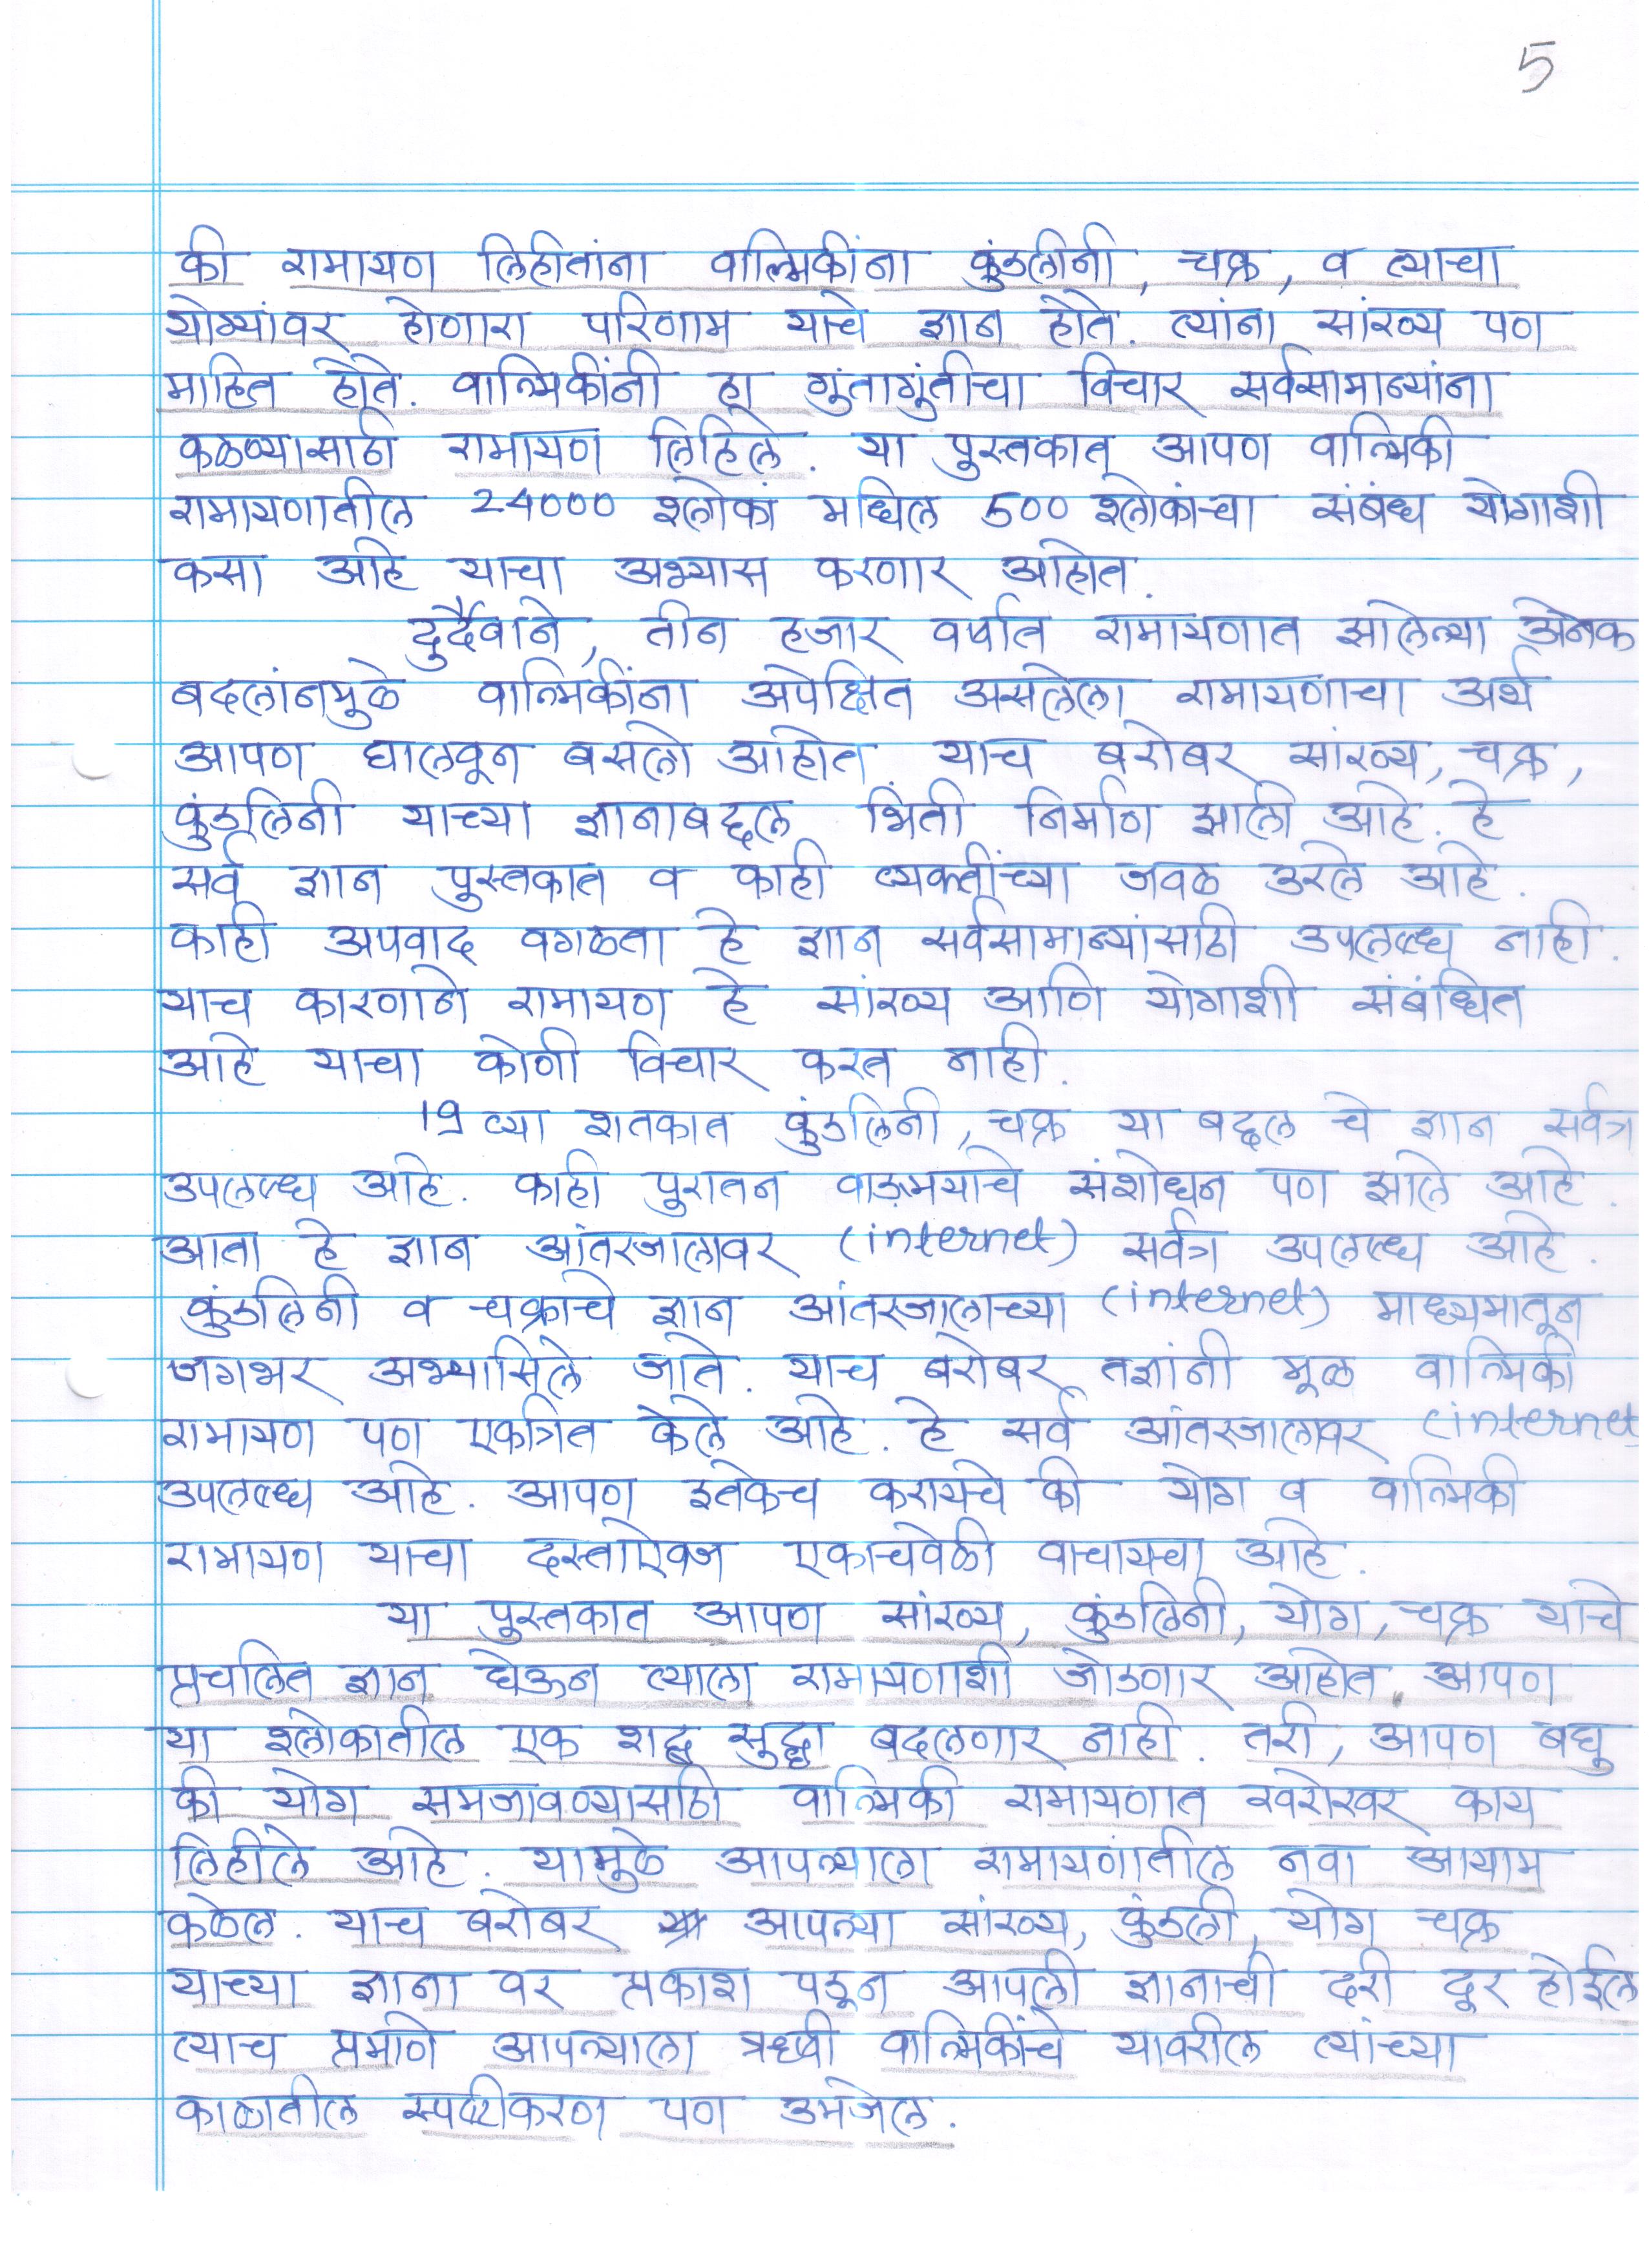 5
की रामायण लिहीतांना वाल्मिकींना कुंडलीनी, चक्र, व त्याचा
योग्यांवर होणारा परिणाम याचे ज्ञान होते. त्यांना सांख्य पण
माहित होते. वाल्मिकींनी हा गुंतागुंतीचा विचार सर्वसामान्यांना
कळण्यासाठी रामायण लिहिले. या पुस्तकात आपण वाल्मिकी
रामायणातील 24000 श्लोकां मधिल 500 श्लोकांचा संबंध योगाशी
कसा आहे याचा अभ्यास करणार आहोत.
दुर्दैवाने, तीन हजार वर्षात रामायणात झालेल्या अनेक
बदलांनमुळे वाल्मिकींना अपेक्षित असलेला रामायणाचा अर्थ
आपण घालवून बसलो आहोत. याच बरोबर सांख्य, चक्र,
कुंडलिनी याच्या ज्ञानाबद्दल भिती निर्माण झाली आहे. हे
सर्व ज्ञान पुस्तकात व काही व्यक्तींच्या जवळ उरले आहे.
काही अपवाद वगळता हे ज्ञान सर्वसामान्यांसाठी उपलब्ध नाही.
याच कारणाने रामायण हे सांख्य आणि योगाशी संबंधित
आहे याचा कोणी विचार करत नाही.
19 व्या शतकात कुंडलिनी, चक्र या बद्दल चे ज्ञान सर्वत्र
उपलब्ध आहे. काही पुरातन वाङमयाचे संशोधन पण झाले आहे.
आता हे ज्ञान आंतरजालावर (internet) सर्वत्र उपलब्ध आहे.
कुंडलिनी व चक्राचे ज्ञान आंतरजालाच्या (internet) माध्यमातून
जगभर अभ्यासिले जाते. याच बरोबर तज्ञांनी मूळ वाल्मिकी
रामायण पण एकत्रित केले आहे. हे सर्व आंतरजालावर (internet)
उपलब्ध आहे. आपण इतकेच करायचे की योग व वाल्मिकी
रामायण याचा दस्ताऐवज एकाचवेळी वाचायचा आहे.
या पुस्तकात आपण सांख्य, कुंडलिनी, योग, चक्र याचे
प्रचलित ज्ञान घेऊन त्याला रामायणाशी जोडणार आहोत. आपण
या श्लोकातील एक शद्ब सुद्धा बदलणार नाही. तरी, आपण बघु
की योग समजावण्यासाठी वाल्मिकी रामायणात खरोखर काय
लिहीले आहे. यामुळे आपल्याला रामायणातील नवा आयाम
कळेल. याच बरोबर आपल्या सांख्य, कुंडली, योग चक्र
याच्या ज्ञाना वर प्रकाश पडून आपली ज्ञानाची दरी दूर होईल
त्याच प्रमाणे आपल्याला ऋषी वाल्मिकींचे यावरील त्यांच्या
काळातील स्पष्टीकरण पण उमजेल.